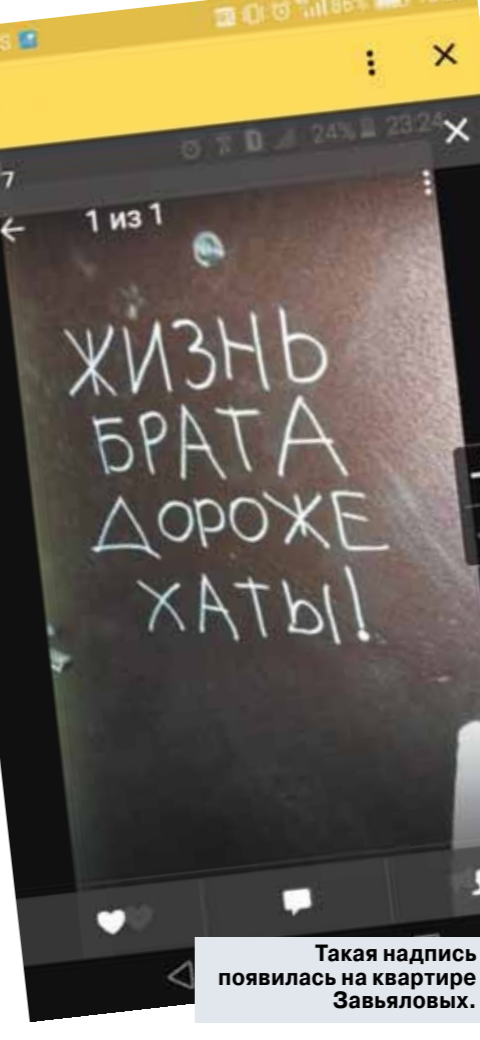 86%
24% 23:24
7
1 из 1
ЖИЗНЬ
БРАТА
ДОРОЖЕ
ХАТЫ!
Такая надпись
появилась на квартире
Завьяловых.